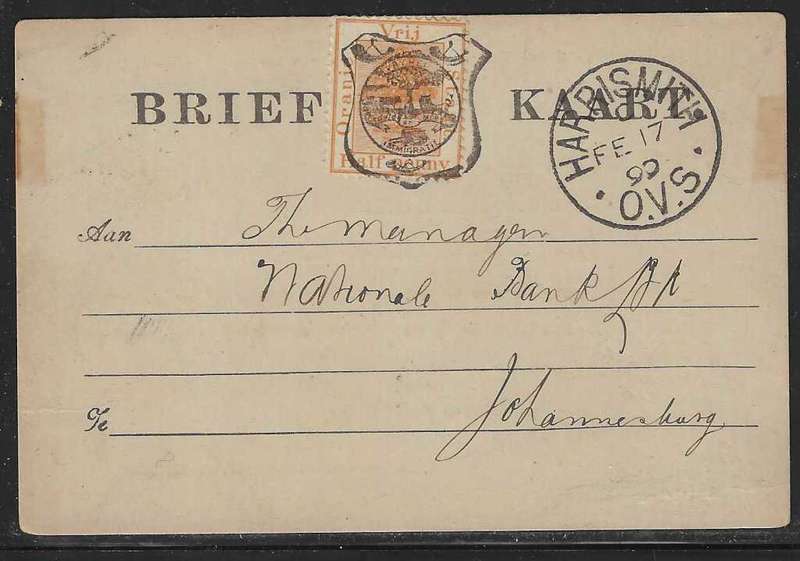 Vrij
Oranje
BRIEF KAART
IMMIGRATIE
Half penny
HARRISMITH
FE 17
99
O.V.S.
Aan The Manager
Nationale Bank
Te Johannesburg